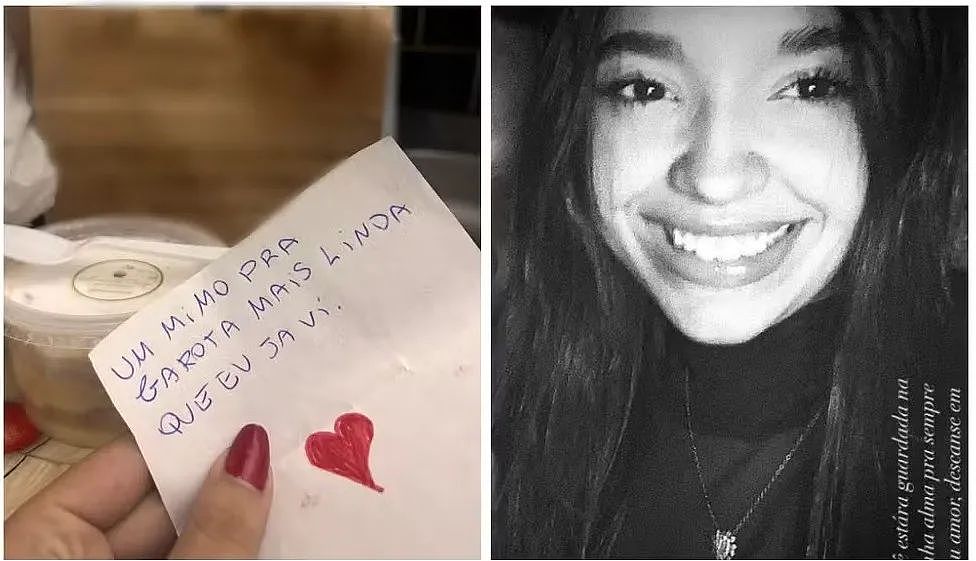 UM MIMO PRA
GAROTA MAIS LINDA
QUE EU JA VI.
ê estára guardada na
nha alma pra sempre
u amor, descanse em